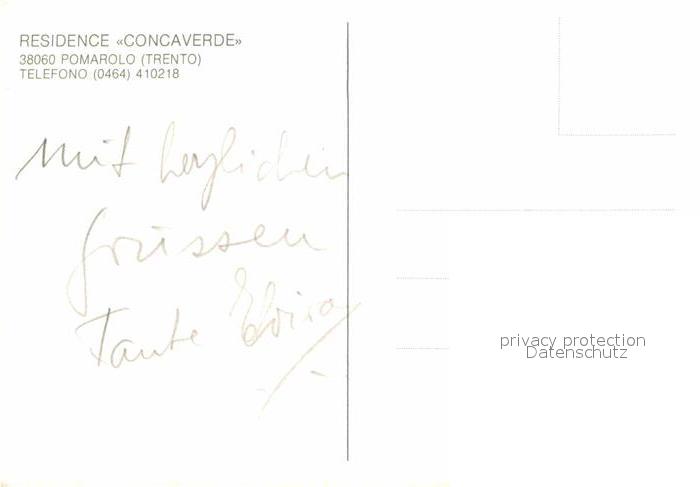 RESIDENCE «CONCAVERDE»
38060 POMAROLO (TRENTO)
TELEFONO (0464) 410218
Mit herzlichen
Grüssen
Tante Elvira
privacy protection
Datenschutz